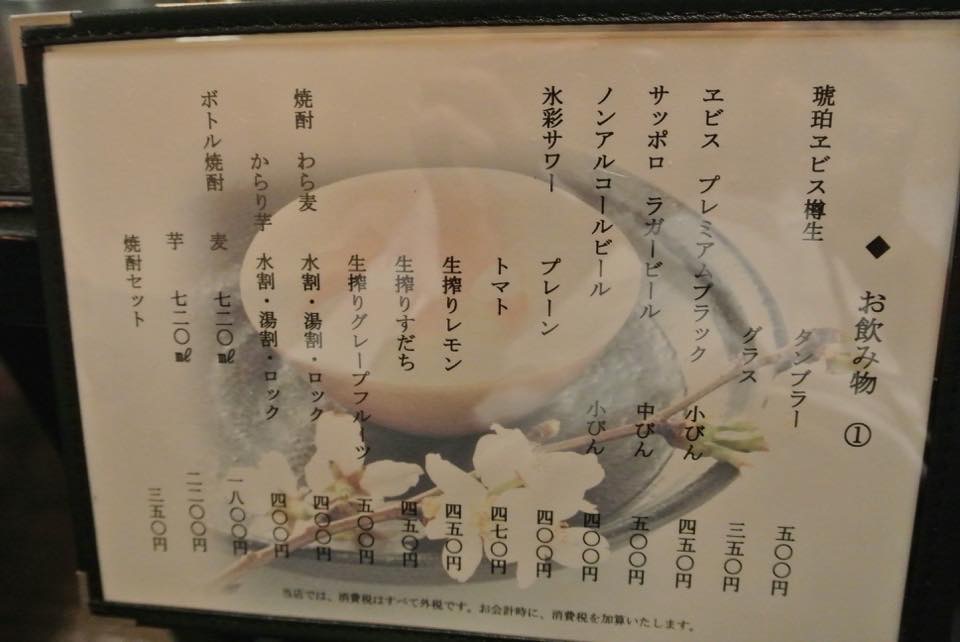 ◆ お飲み物 ①
琥珀ヱビス樽生 タンブラー 五〇〇円
グラス 三五〇円
ヱビス プレミアムブラック 小びん 四五〇円
サッポロ ラガービール 中びん 五〇〇円
ノンアルコールビール 小びん 四〇〇円
氷彩サワー プレーン 四〇〇円
トマト 四七〇円
生搾りレモン 四五〇円
生搾りすだち 四五〇円
生搾りグレープフルーツ 五〇〇円
焼酎 わら麦 水割・湯割・ロック 四〇〇円
からり芋 水割・湯割・ロック 四〇〇円
ボトル焼酎 麦 七二〇㎖ 一八〇〇円
芋 七二〇㎖ 二二〇〇円
焼酎セット 三五〇円
当店では、消費税はすべて外税です。お会計時に、消費税を加算いたします。